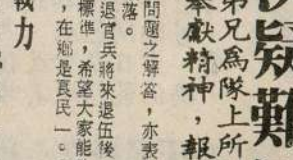 疑難
弟兄爲隊上所
奉獻精神，報
問題之解答，亦表
落。
退官兵將來退伍後
標準，希望大家能
，在鄉是良民」。
戰力